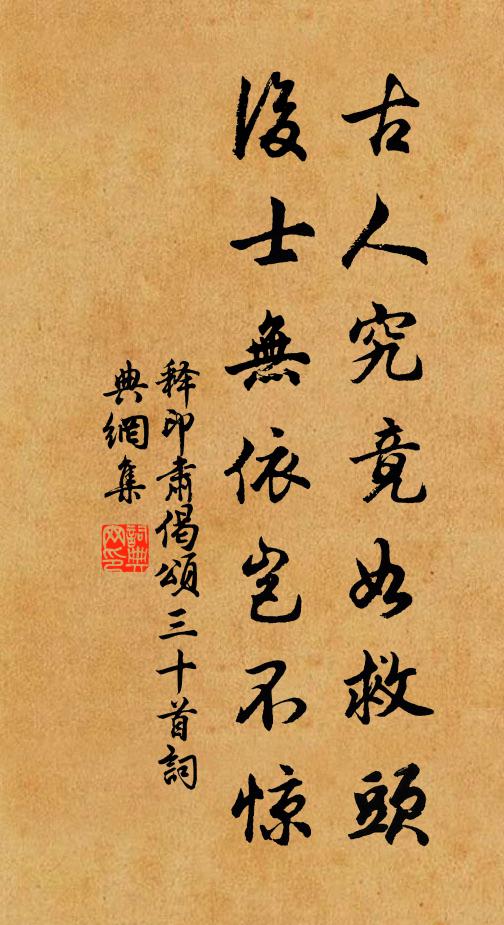 古人究竟如救頭
後士無依豈不惊
释印肅偈頌三十首詞
典網集
詞典网印